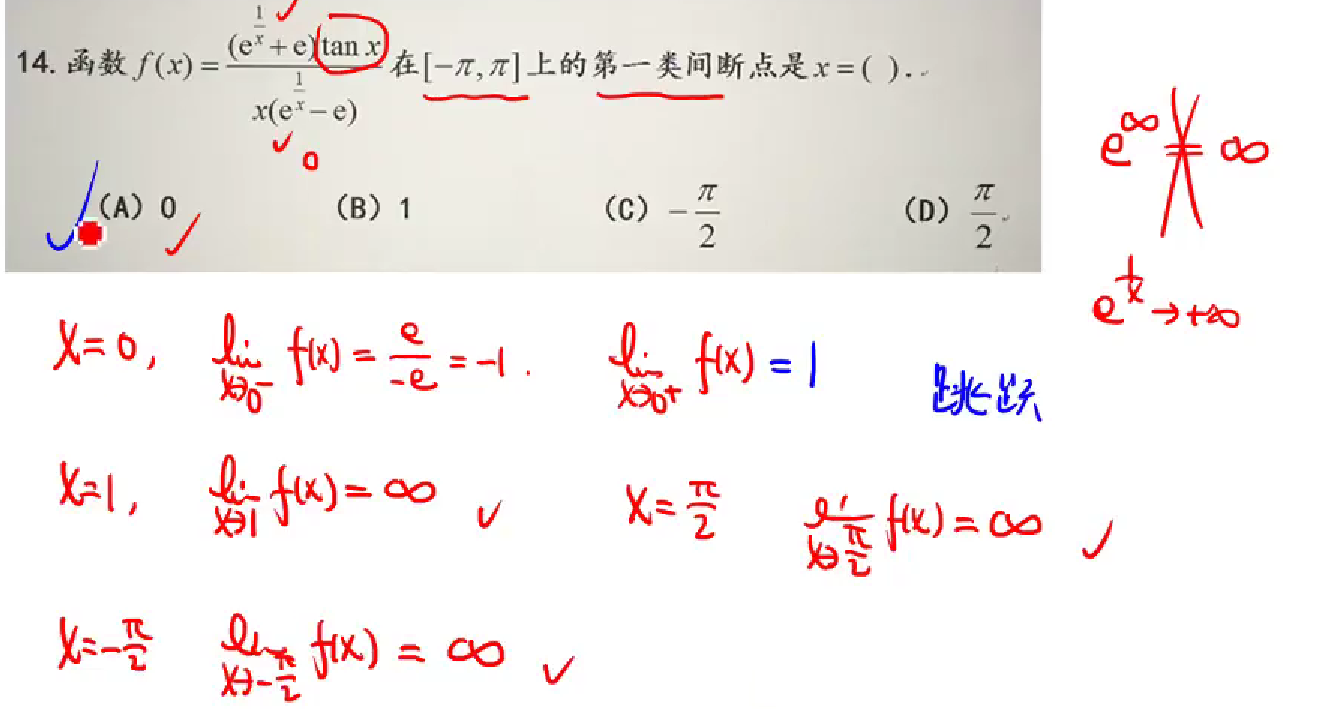 14. 函数 f(x) = (e^{1/x} + e) tan x / x(e^{1/x} − e) 在 [−π, π] 上的第一类间断点是 x = ( ).
(A) 0 (B) 1 (C) −π/2 (D) π/2.
0
e^∞ ≠ ∞
e^{1/x} → +∞
x=0, lim_{x→0⁻} f(x) = e/−e = −1. lim_{x→0⁺} f(x) = 1 跳跃
x=1, lim_{x→1} f(x) = ∞ x=π/2 lim_{x→π/2} f(x) = ∞
x=−π/2 lim_{x→−π/2} f(x) = ∞